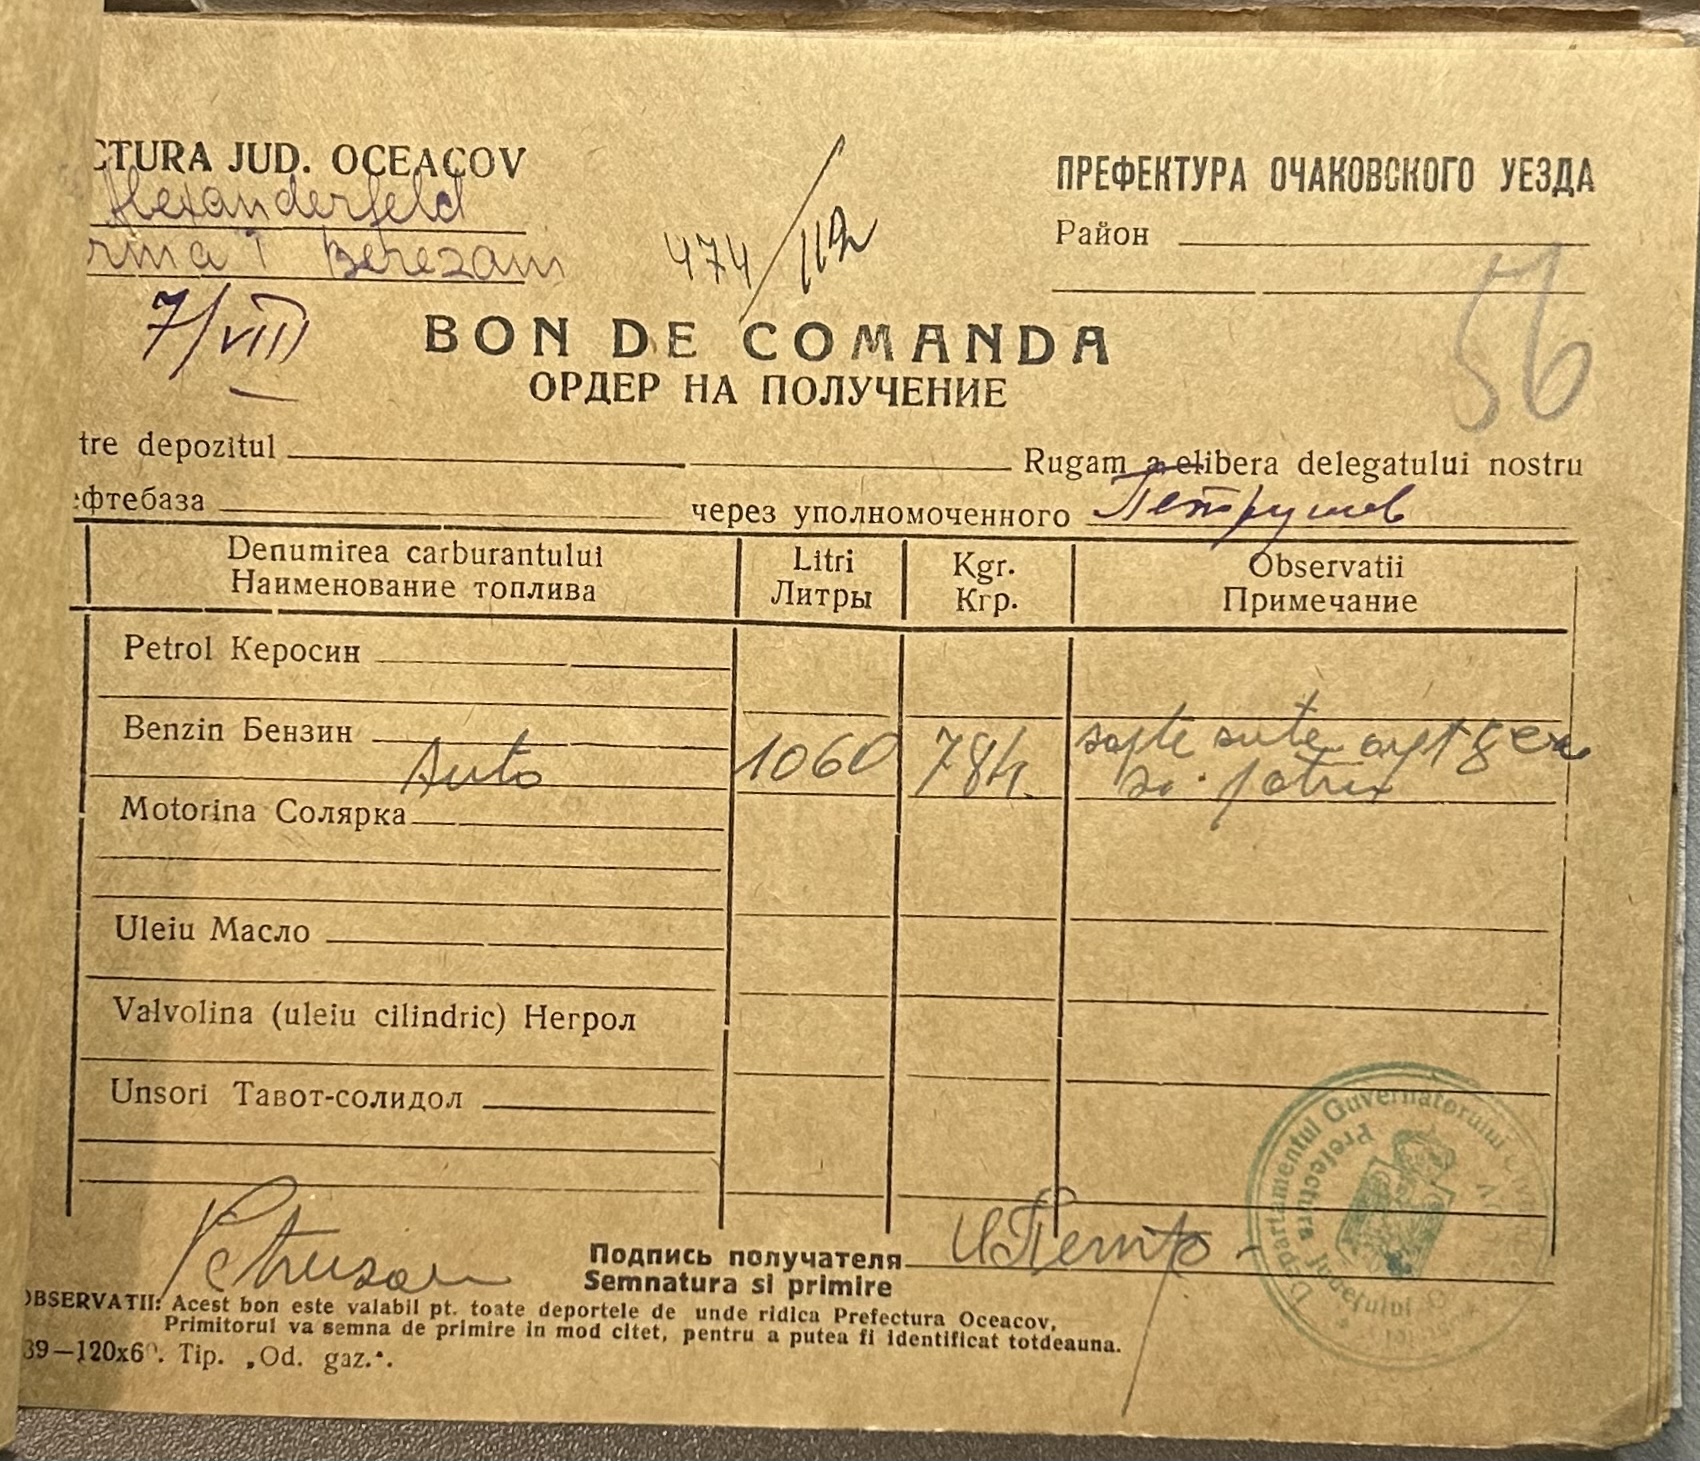 CTURA JUD. OCEACOV
Alexanderfeld
rma 1 Berezani
7/VIII
474/112
ПРЕФЕКТУРА ОЧАКОВСКОГО УЕЗДА
Район
56
BON DE COMANDA
ОРДЕР НА ПОЛУЧЕНИЕ
tre depozitul Rugam a elibera delegatului nostru
ефтебаза через уполномоченного Петрушев
Denumirea carburantului Litri Kgr. Observatii
Наименование топлива Литры Кгр. Примечание
Petrol Керосин
Benzin Бензин
Auto 1060 784 sapte sute opt zeci
si patru
Motorina Солярка
Uleiu Масло
Valvolina (uleiu cilindric) Негрол
Unsori Тавот-солидол
Departamentul Guvernatorului
Prefectura Județului
Подпись получателя
Semnatura si primire
OBSERVATII: Acest bon este valabil pt. toate deportele de unde ridica Prefectura Oceacov,
Primitorul va semna de primire in mod citet, pentru a putea fi identificat totdeauna.
39—120x60. Tip. „Od. gaz.“.